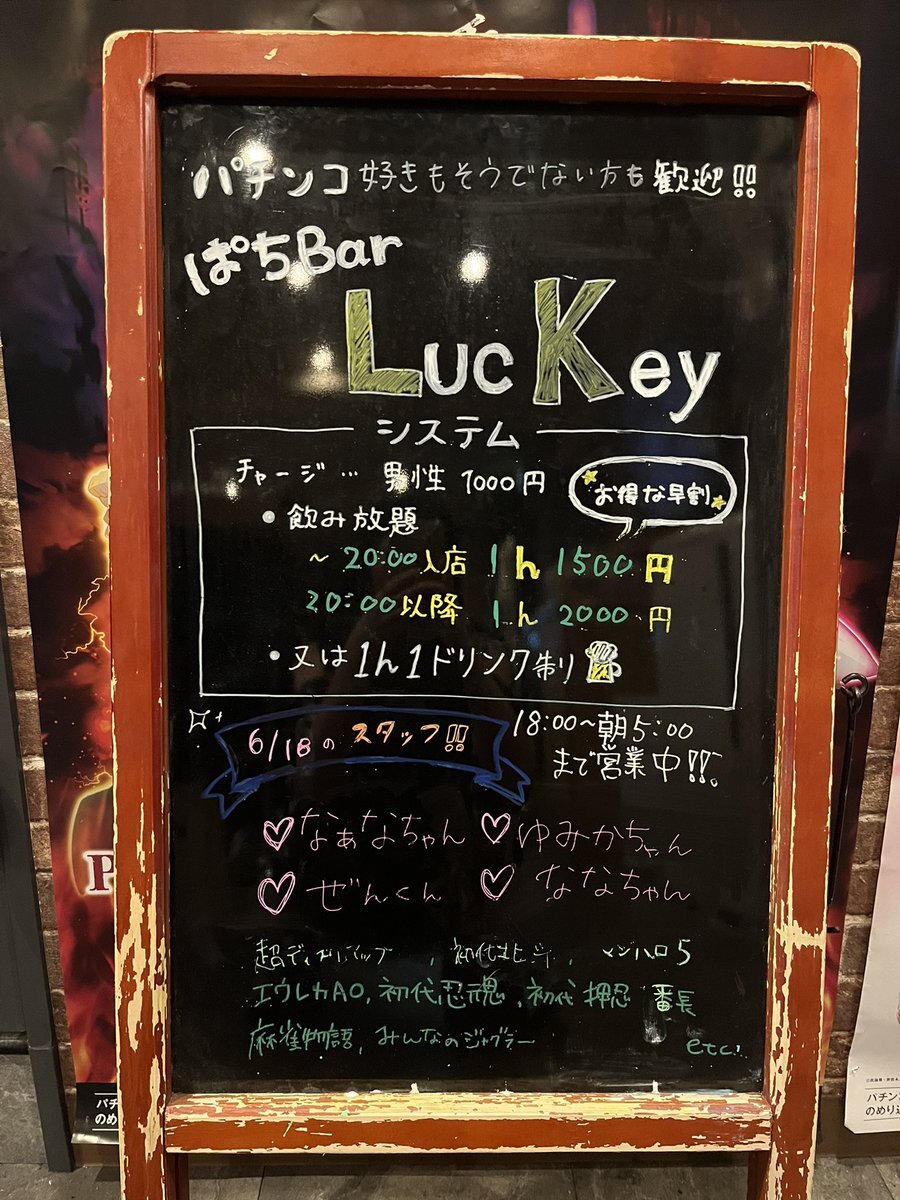 パチンコ好きもそうでない方も歓迎!!
ぱちBar
LucKey
システム
チャージ… 男性 1000円
お得な早割
・飲み放題
~20:00入店 1h 1500円
20:00以降 1h 2000円
・又は1h1ドリンク制り
6/18のスタッフ!!
18:00~朝5:00
まで営業中!!
♡なぁなちゃん ♡ゆみかちゃん
♡ぜんくん ♡ななちゃん
初代北斗, マジハロ5
エウレカAO, 初代忍魂, 初代 押忍 番長
麻雀物語, みんなのジャグラー etc!
P
パチン
のめり
パチンコ
のめり込